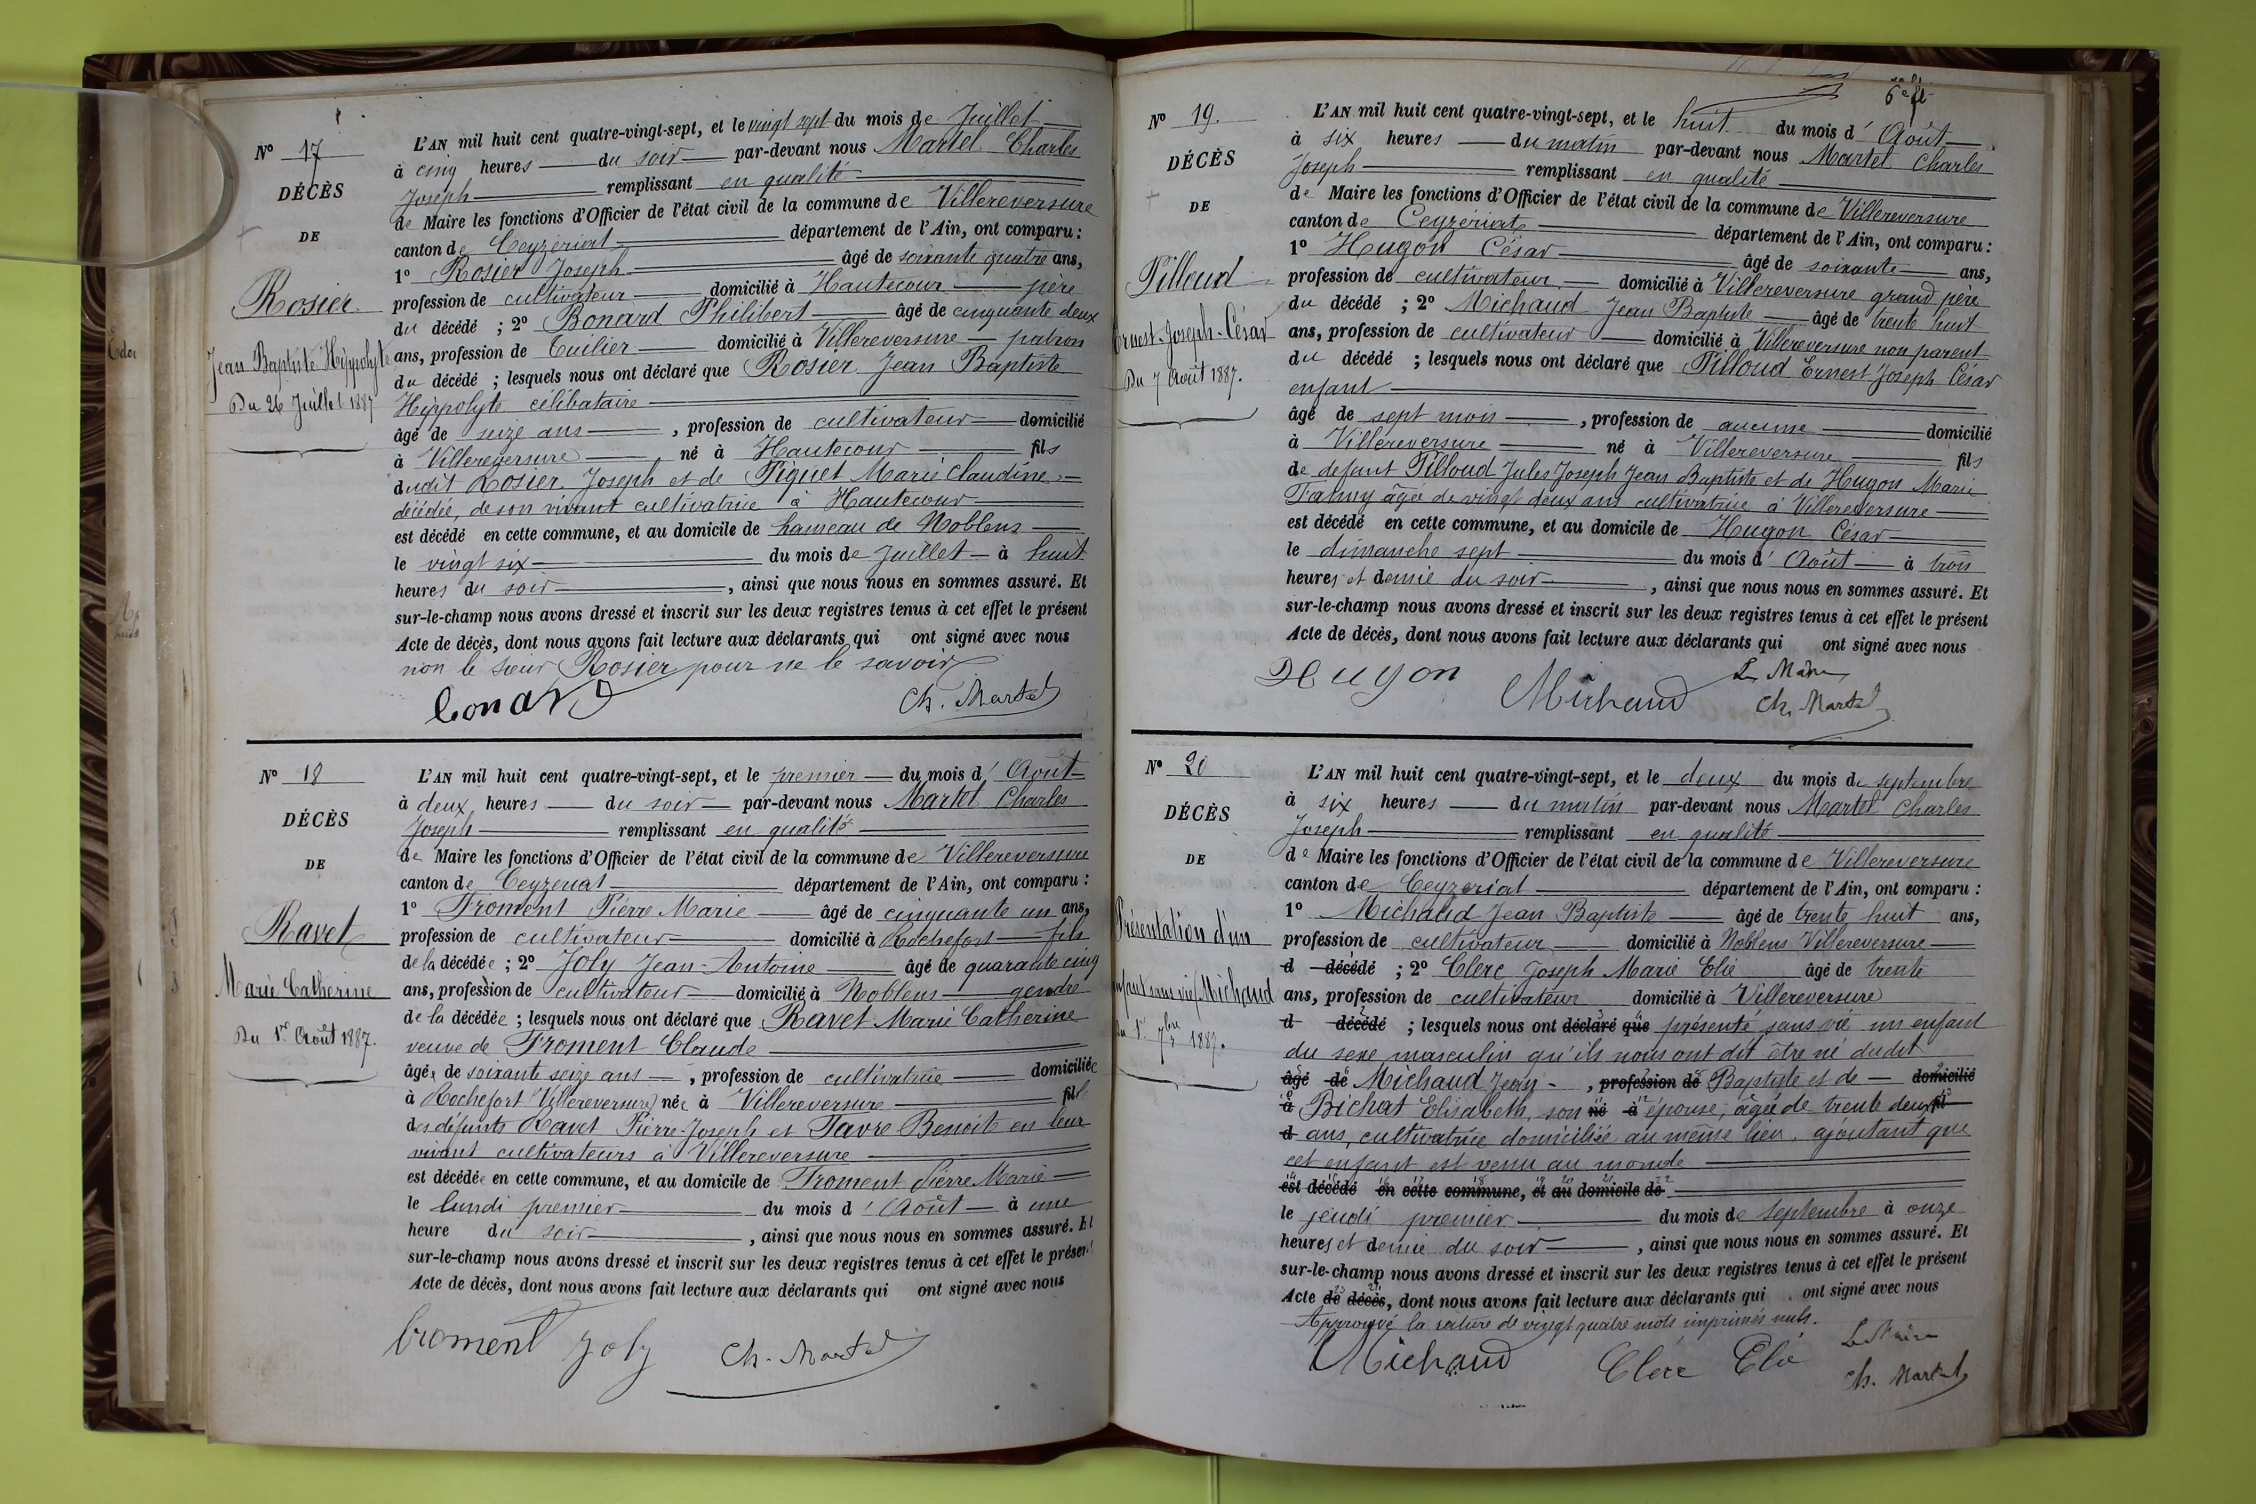 N° 17
DÉCÈS
DE
Rosier
Jean Baptiste Hippolyte
Du 26 Juillet 1887
L'AN mil huit cent quatre-vingt-sept, et le vingt sept du mois de Juillet
à cinq heures du soir par-devant nous Martel Charles
Joseph remplissant en qualité
de Maire les fonctions d'Officier de l'état civil de la commune de Villereversure
canton de Ceyzériat département de l'Ain, ont comparu :
1° Rosier Joseph âgé de soixante quatre ans,
profession de cultivateur domicilié à Hautecour père
du décédé ; 2° Bonard Philibert âgé de cinquante deux
ans, profession de Tuilier domicilié à Villereversure patron
du décédé ; lesquels nous ont déclaré que Rosier Jean Baptiste
Hippolyte célibataire
âgé de seize ans , profession de cultivateur domicilié
à Villereversure né à Hautecour fils
dudit Rosier Joseph et de Piquet Marie Claudine,
décédée, de son vivant cultivatrice à Hautecour
est décédé en cette commune, et au domicile de hameau de Noblens
le vingt six du mois de Juillet à huit
heures du soir , ainsi que nous nous en sommes assuré. Et
sur-le-champ nous avons dressé et inscrit sur les deux registres tenus à cet effet le présent
Acte de décès, dont nous avons fait lecture aux déclarants qui ont signé avec nous
non le sieur Rosier pour ne le savoir
Bonard Ch. Martel
N° 18
DÉCÈS
DE
Ravet
Marie Catherine
Du 1er Août 1887.
L'AN mil huit cent quatre-vingt-sept, et le premier du mois d'Août
à deux heures du soir par-devant nous Martel Charles
Joseph remplissant en qualité
de Maire les fonctions d'Officier de l'état civil de la commune de Villereversure
canton de Ceyzeriat département de l'Ain, ont comparu :
1° Froment Pierre Marie âgé de cinquante un ans,
profession de cultivateur domicilié à Rochefort fils
de la décédée ; 2° Joly Jean-Antoine âgé de quarante cinq
ans, profession de cultivateur domicilié à Noblens gendre
de la décédée ; lesquels nous ont déclaré que Ravet Marie Catherine
veuve de Froment Claude
âgée de soixante seize ans , profession de cultivatrice domiciliée
à Rochefort (Villereversure) née à Villereversure fille
des défunts Ravet Pierre-Joseph et Favre Benoite en leur
vivant cultivateurs à Villereversure
est décédée en cette commune, et au domicile de Froment Pierre Marie
le lundi premier du mois d'Août à une
heure du soir , ainsi que nous nous en sommes assuré. Et
sur-le-champ nous avons dressé et inscrit sur les deux registres tenus à cet effet le présent
Acte de décès, dont nous avons fait lecture aux déclarants qui ont signé avec nous
froment Joly Ch. Martel
N° 19.
DÉCÈS
DE
Pilloud
Ernest-Joseph-César
Du 7 Août 1887.
L'AN mil huit cent quatre-vingt-sept, et le huit du mois d'Août
à six heures du matin par-devant nous Martel Charles
Joseph remplissant en qualité
de Maire les fonctions d'Officier de l'état civil de la commune de Villereversure
canton de Ceyzériat département de l'Ain, ont comparu :
1° Hugon César âgé de soixante ans,
profession de cultivateur domicilié à Villereversure grand père
du décédé ; 2° Michaud Jean Baptiste âgé de trente huit
ans, profession de cultivateur domicilié à Villereversure non parent
du décédé ; lesquels nous ont déclaré que Pilloud Ernest Joseph César
enfant
âgé de sept mois , profession de aucune domicilié
à Villereversure né à Villereversure fils
de defunt Pilloud Jules Joseph Jean Baptiste et de Hugon Marie
Fanny âgée de vingt deux ans cultivatrice à Villereversure
est décédé en cette commune, et au domicile de Hugon César
le dimanche sept du mois d'Août à trois
heures et demie du soir , ainsi que nous nous en sommes assuré. Et
sur-le-champ nous avons dressé et inscrit sur les deux registres tenus à cet effet le présent
Acte de décès, dont nous avons fait lecture aux déclarants qui ont signé avec nous
Hugon Michaud Le Maire
Ch. Martel
N° 20
DÉCÈS
DE
Présentation d'un
enfant sans vie Michaud
Du 1er 7bre 1887.
L'AN mil huit cent quatre-vingt-sept, et le deux du mois de septembre
à six heures du matin par-devant nous Martel Charles
Joseph remplissant en qualité
de Maire les fonctions d'Officier de l'état civil de la commune de Villereversure
canton de Ceyzériat département de l'Ain, ont comparu :
1° Michaud Jean Baptiste âgé de trente huit ans,
profession de cultivateur domicilié à Noblens Villereversure
d décédé ; 2° Clerc Joseph Marie Elie âgé de trente
ans, profession de cultivateur domicilié à Villereversure
d décédé ; lesquels nous ont déclaré que présenté sans vie un enfant
du sexe masculin qu'ils nous ont dit être né dudit
âgé de Michaud Jean- , profession de Baptiste et de domicilié
à Bichat Elisabeth, son né à épouse, âgée de trente deux fil
d ans, cultivatrice domiciliée au même lieu, ajoutant que
cet enfant est venu au monde
est décédé en cette commune, et au domicile de
le jeudi premier du mois de septembre à onze
heures et demie du soir , ainsi que nous nous en sommes assuré. Et
sur-le-champ nous avons dressé et inscrit sur les deux registres tenus à cet effet le présent
Acte de décès, dont nous avons fait lecture aux déclarants qui ont signé avec nous
Approuvé la rature de vingt quatre mots imprimés nuls.
Michaud Clerc Elie Le Maire
Ch. Martel